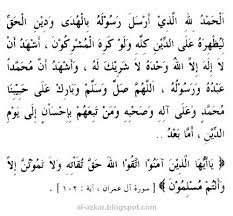 الْحَمْدُ لِلَّهِ الَّذِيْ أَرْسَلَ رَسُوْلَهُ بِالْهُدَى وَدِيْنِ الْحَقِّ
لِيُظْهِرَهُ عَلَى الدِّيْنِ كُلِّهِ وَلَوْ كَرِهَ الْمُشْرِكُوْنَ ، أَشْهَدُ أَنْ
لَا إِلَهَ إِلَّا اللهُ وَحْدَهُ لَا شَرِيْكَ لَهُ ، وَأَشْهَدُ أَنَّ مُحَمَّداً
عَبْدُهُ وَرَسُوْلُهُ ، اللَّهُمَّ صَلِّ وَسَلِّمْ وَبَارِكْ عَلَى حَبِيْبِنَا
مُحَمَّدٍ وَعَلَى آلِهِ وَصَحْبِهِ وَمَنْ تَبِعَهُمْ بِإِحْسَانٍ إِلَى يَوْمِ
الدِّيْنِ ، أَمَّا بَعْدُ ..
﴿ يَاأَيُّهَا الَّذِيْنَ آمَنُوْا اتَّقُوْا اللهَ حَقَّ تُقَاتِهِ وَلَا تَمُوْتُنَّ إِلَّا
وَأَنْتُمْ مُسْلِمُوْنَ ﴾ [ سورة آل عمران ، آية : ١٠٢ ] .
al-azkar.blogspot.com